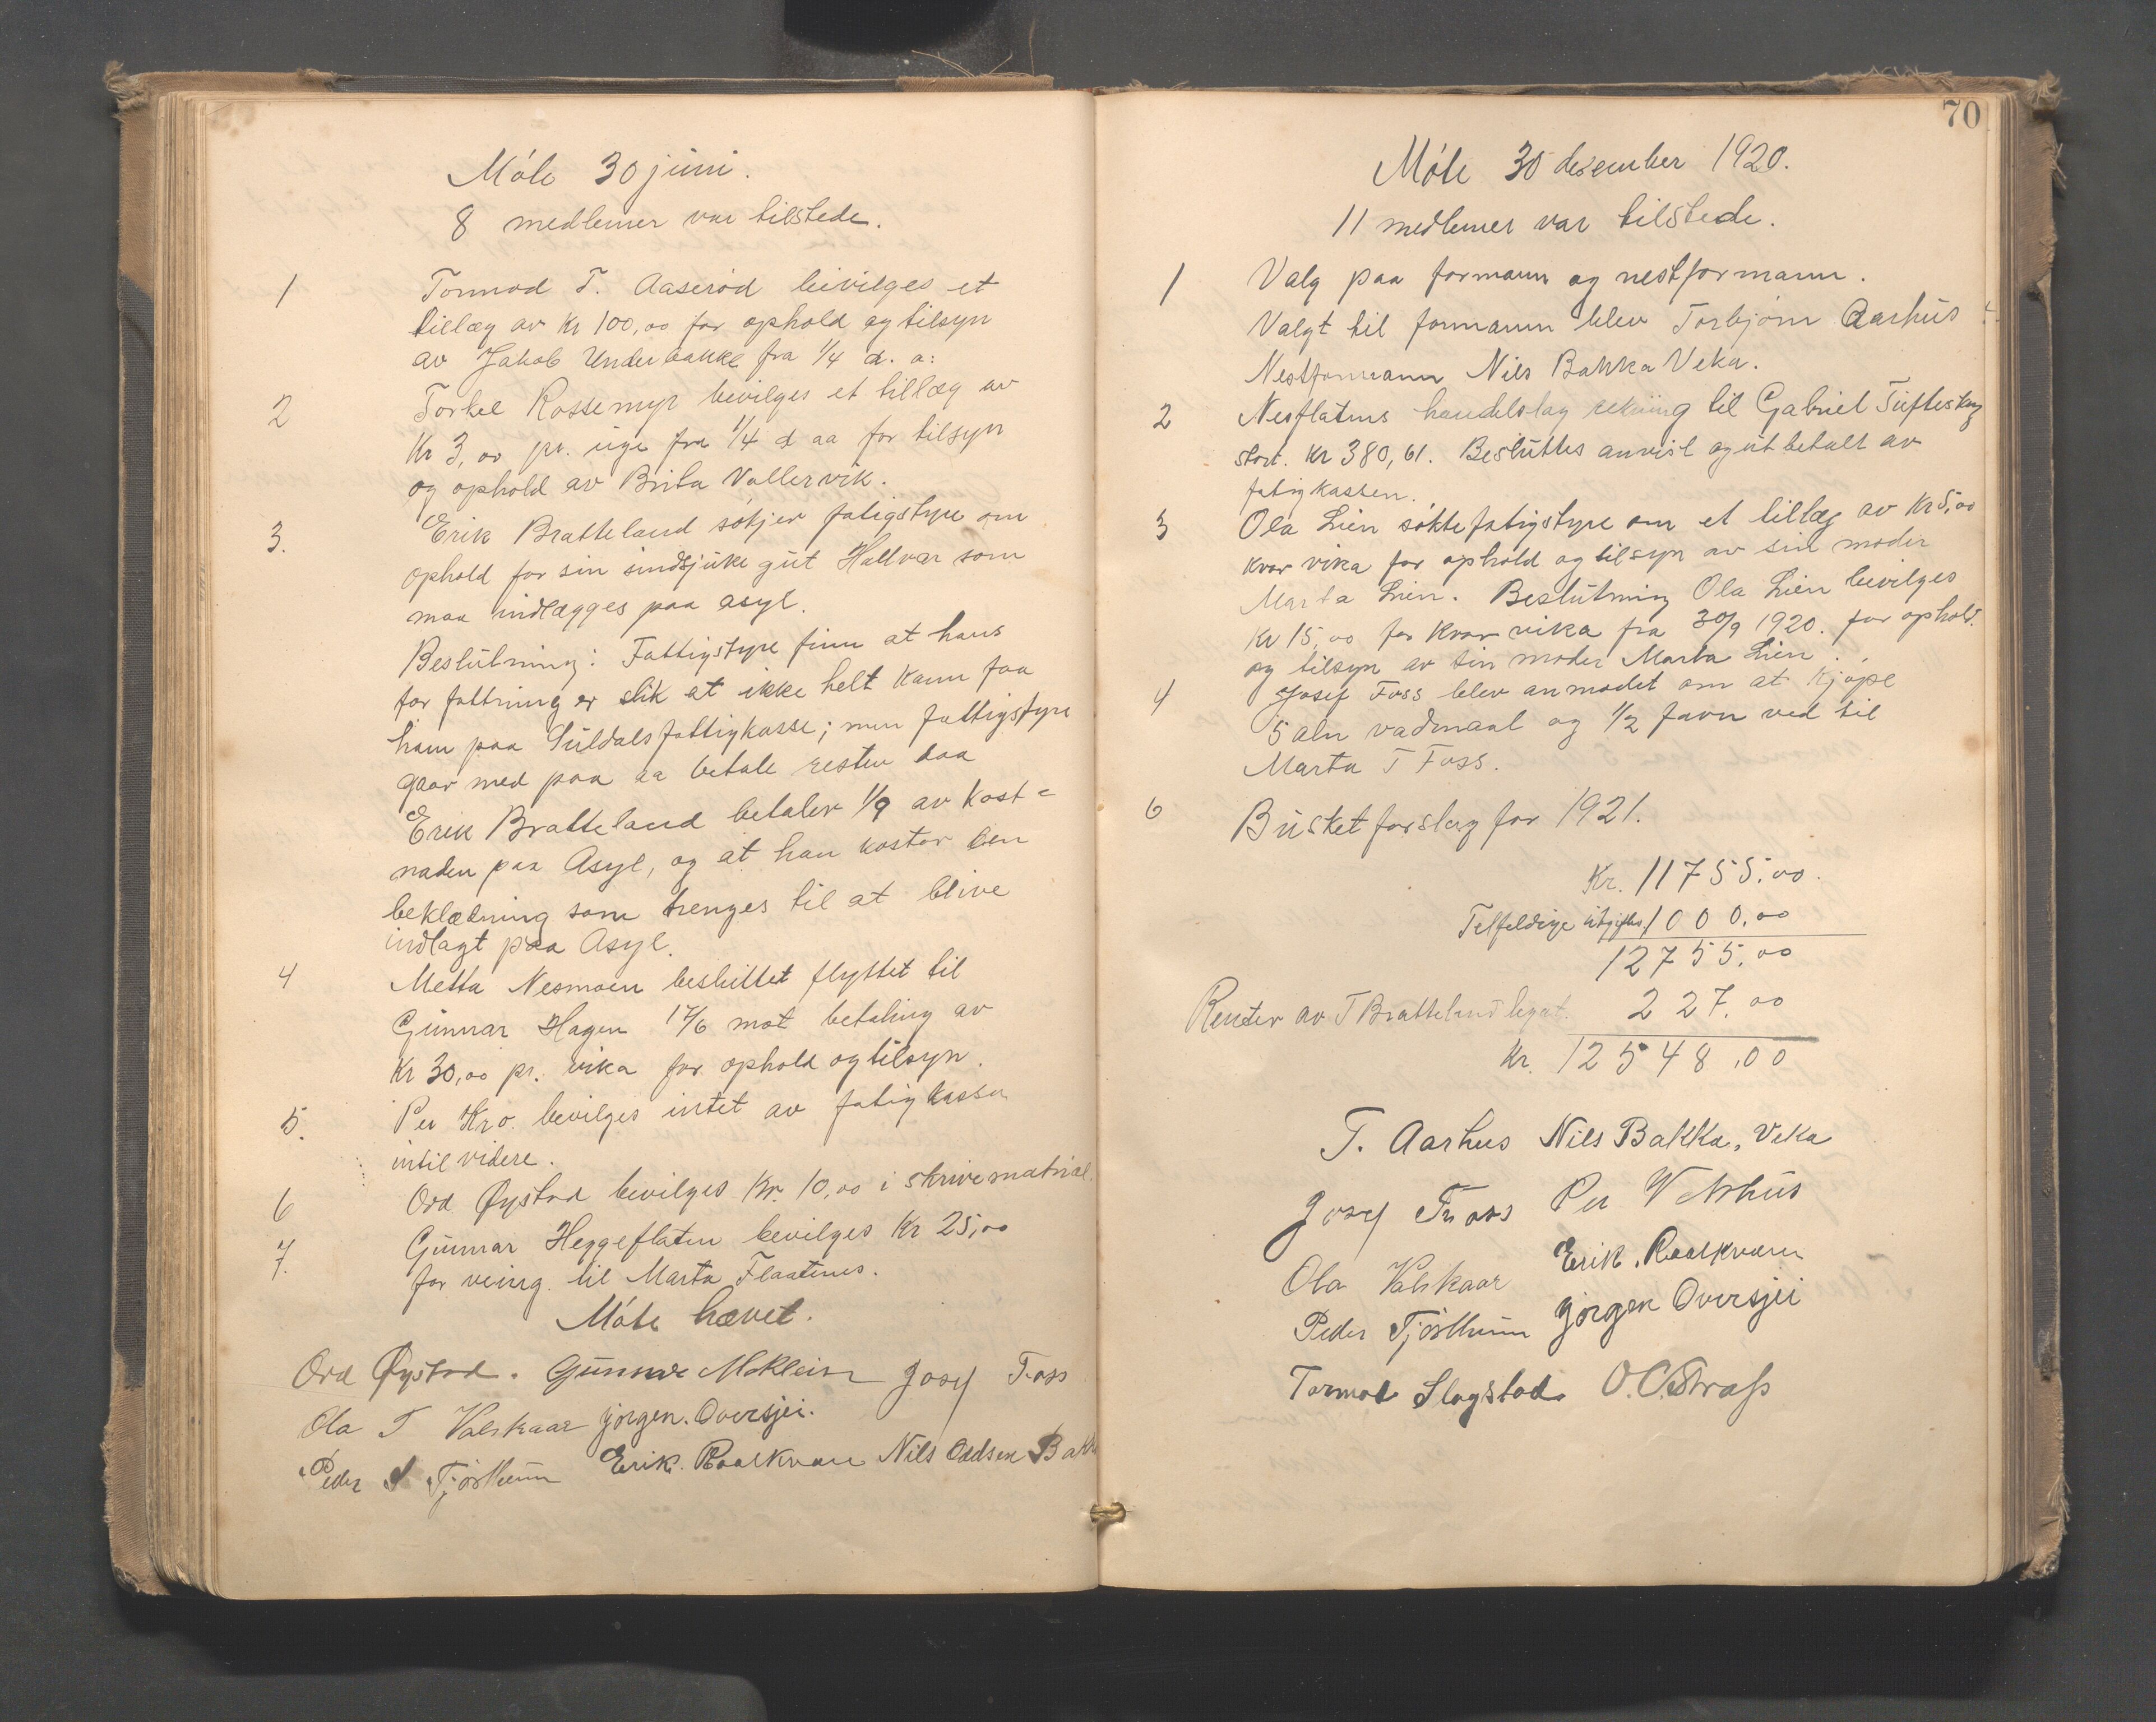 Møte 30 juni.
8 medlemer var tilstede.
1 Tormod T. Aaserød bevilges et
tillæg av Kr 100,00 for ophold og tilsyn
av Jakob Underbakke fra 1/4 d. a:
2 Torkel Rossemyr bevilges et tillæg av
Kr 3,00 pr. uge fra 1/4 d aa for tilsyn
og ophold av Brita Vallervik.
3. Erik Bratteland søkjer fatigstyre om
ophold for sin sindsjuke gut Hallvar som
maa indlægges paa asyl.
Beslutning: Fattigstyre finn at hans
forfattning er slik at ikke helt kann faa
ham paa Suldals fattigkasse; men fattigstyre
gaar med paa aa betale resten daa
Erik Bratteland betaler 1/9 av kost=
naden paa Asyl, og at han koster den
beklædning som trenges til at blive
indlagt paa Asyl.
4 Metta Nesmoen besluttet flyttet til
Gunnar Hagen 17/6 mot betaling av
Kr 30,00 pr. vika for ophold og tilsyn.
5. Per Kro bevilges intet av fatigkassen
intil videre.
6 Ord Øystad bevilges Kr. 10,00 i skrivematrial.
7. Gunnar Heggeflaten bevilges Kr 25,00
for veing til Marta Flaatenes.
Møte hævet.
Ord Øystad. Gunnar Moklein Josef Foss
Ola T Valskaar Jørgen. Oversjei.
Peder Tjøstheim Erik. Raalkvam Nils Oddsen Bakka
70
Møte 30 desember 1920.
11 medlemer var tilstede.
1 Valg paa formann og nestformann.
Valgt til formann blev Torbjørn Aarhus
Nestformann Nils Bakka Veka.
2 Nesflatens handelslag rekning til Gabriel Tufteskog
stort. Kr 380,61. Besluttes anvist og utbetalt av
fatigkassen.
3 Ola Lien søkte fatigstyre om et tillæg av Kr 5,00
kvar vika for ophold og tilsyn av sin moder
Marta Lien. Beslutning Ola Lien bevilges
Kr 15,00 for kvar vika fra 30/9 1920. for ophold.
og tilsyn av sin moder Marta Lien.
4 Josef Foss blev anmodet om at kjøpe
5 aln vadmaal og 1/2 favn ved til
Marta T Foss.
6 Busketforslag for 1921.
Kr. 11755,00.
Telfeldige utgifter 1000,00
12755,00
Renter av T Bratteland legat. 227,00
Kr. 12548,00
T. Aarhus Nils Bakka, Veka
Josef Foss Per Vetrhus
Ola Valskaar Erik. Raalkvam
Peder Tjøstheim Jørgen Oversjei
Tormod Slagstad